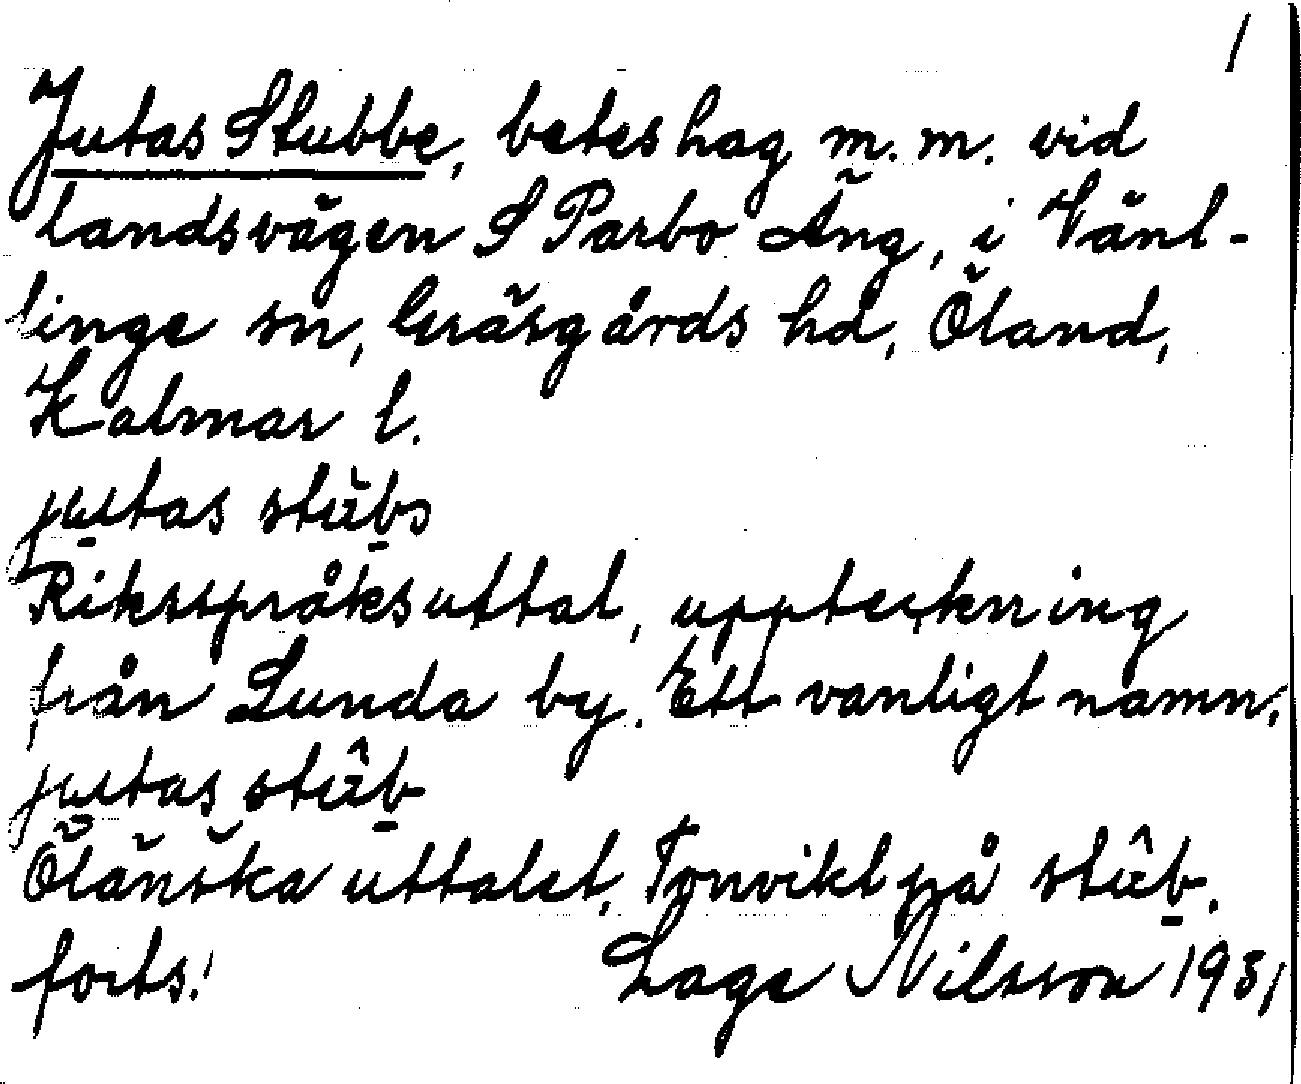 1
Jutas Stubbe, beteshag m.m. vid
landsvägen S Parbo Äng, i Vänl-
linge sn, Gräsgårds hd, Öland,
Kalmar l.
jutas stŭbə
Riksspråksuttal, uppteckning
från Lunda by. Ett vanligt namn.
jutas stûb
Öländska uttalet, Tonvikt på stûb.
forts! Lage Nilsson 1931